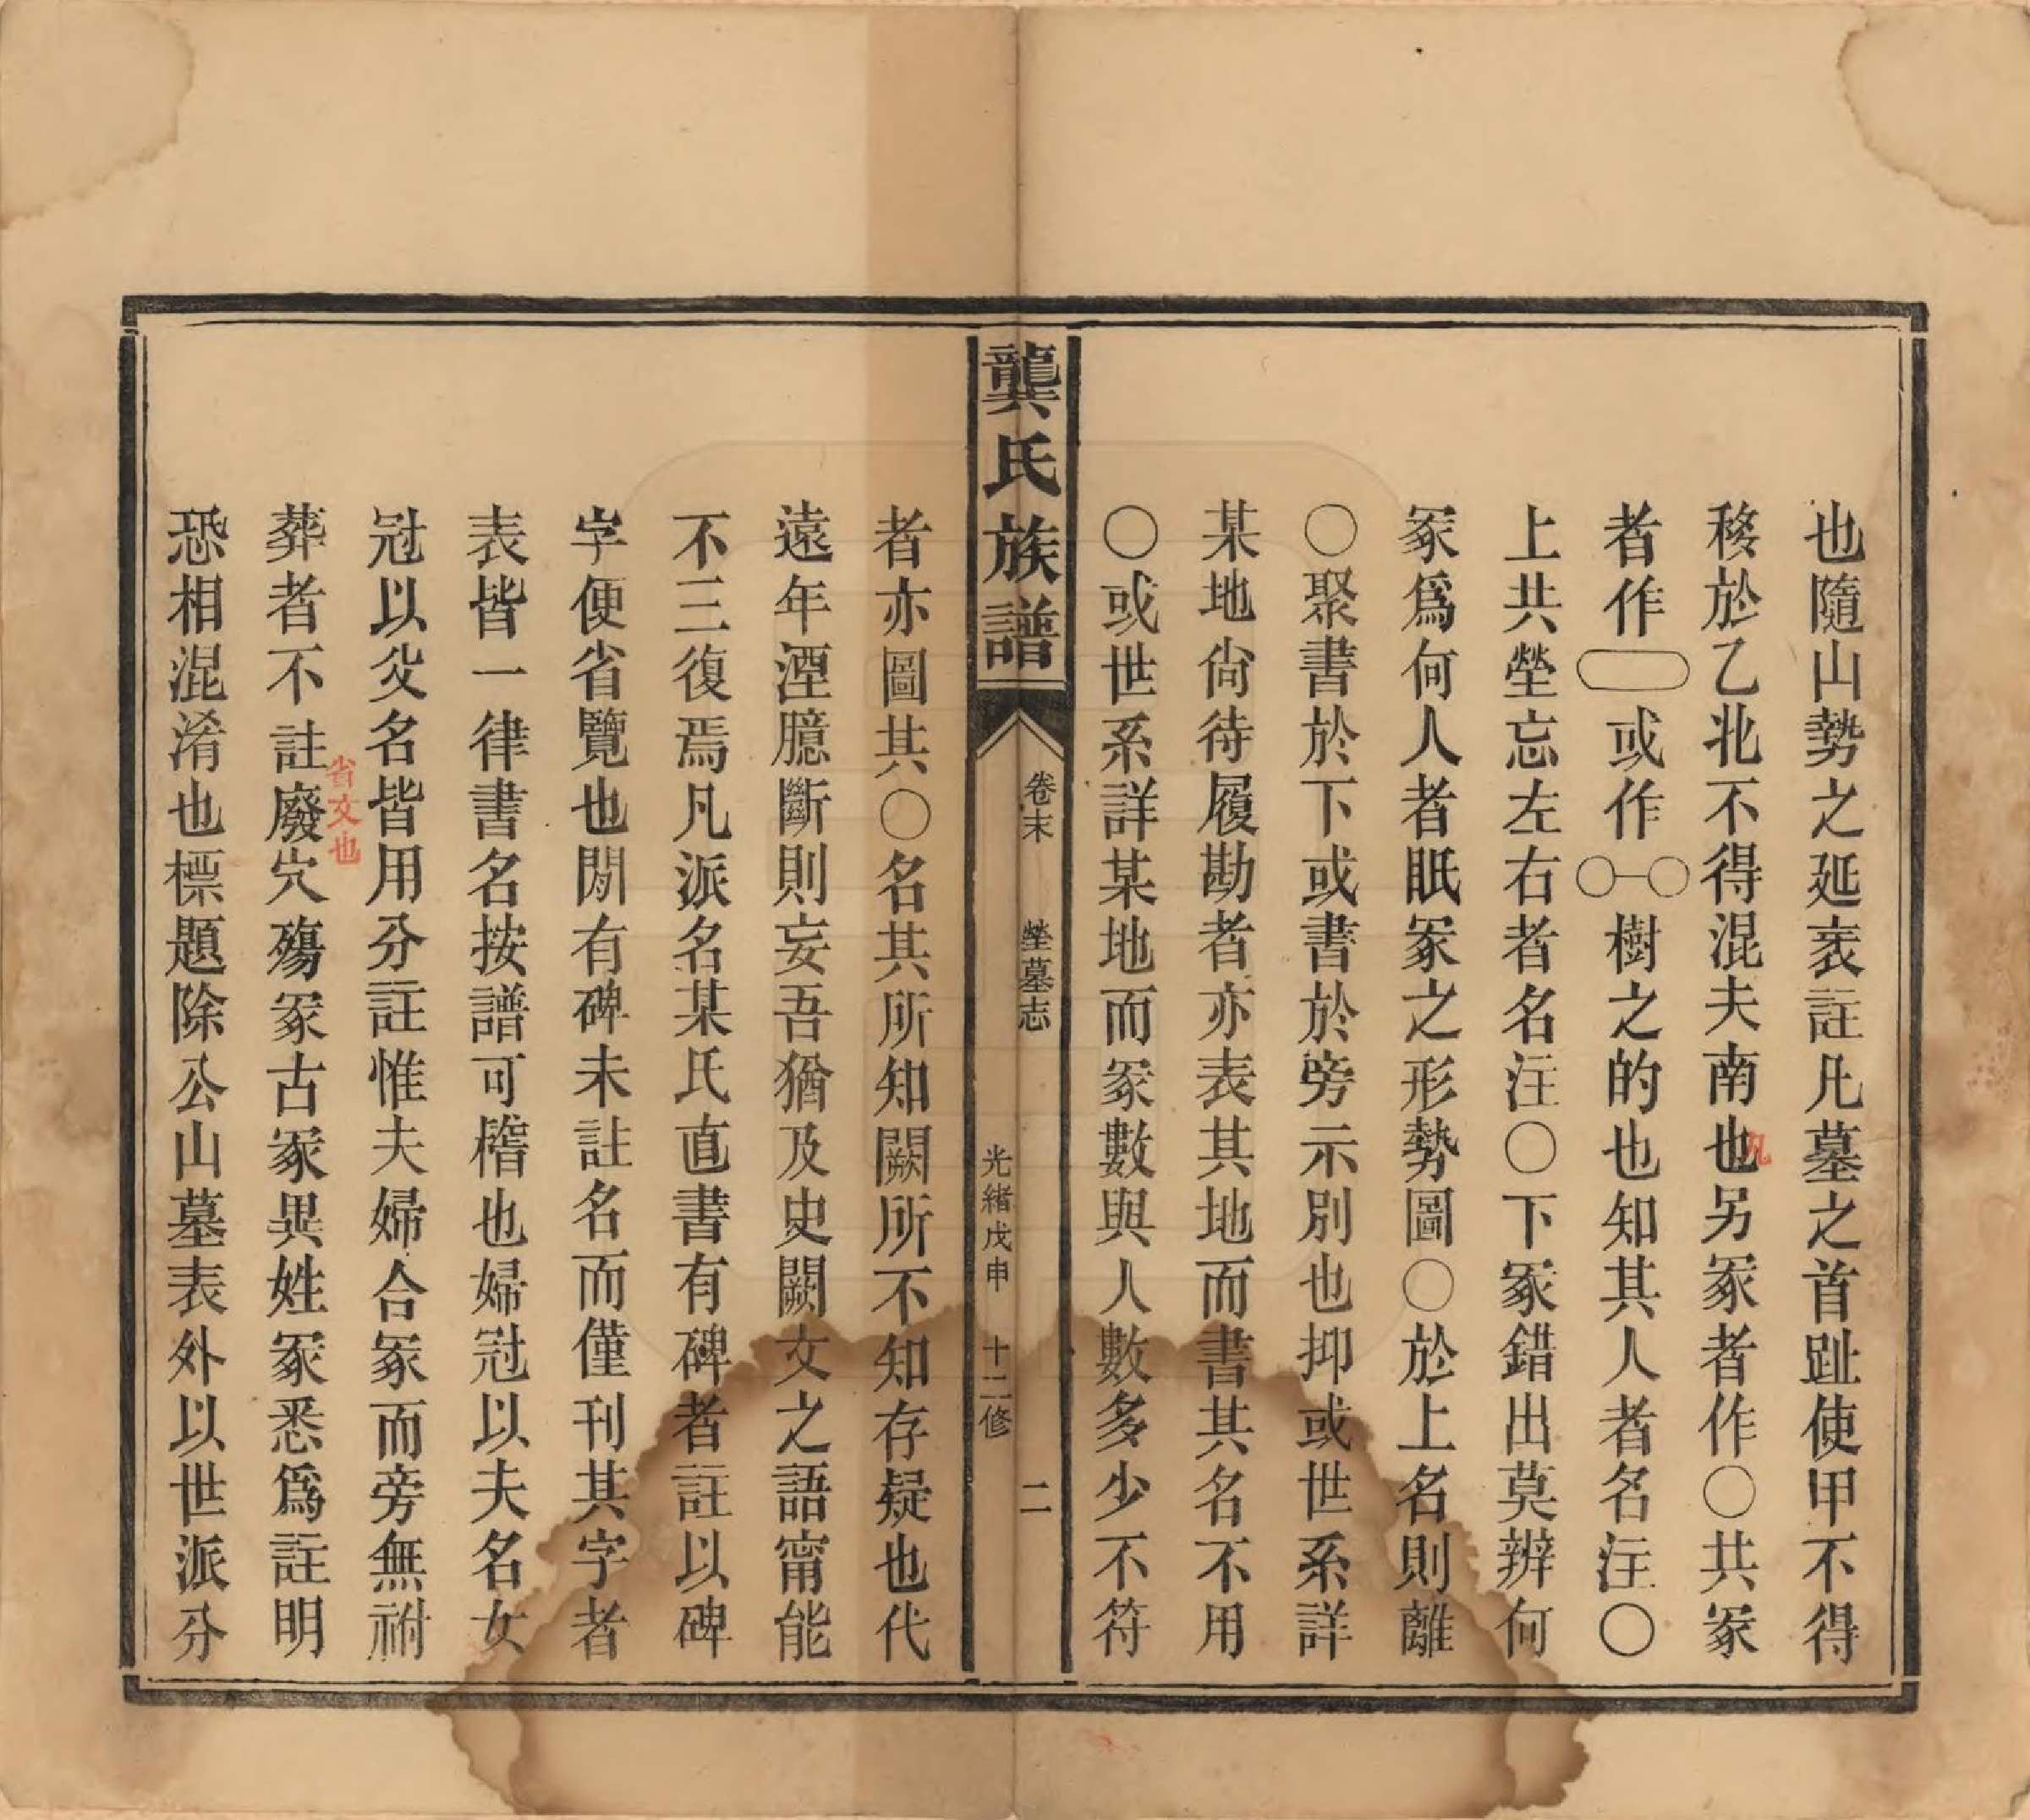 也隨山勢之延袤註凡墓之首趾使甲不得
移於乙北不得混夫南也凡另冢者作〇共冢
者作⬭或作〇一〇樹之的也知其人者名注〇
上共塋忘左右者名注〇下冢錯出莫辨何
冢爲何人者眂冢之形勢圖〇於上名則離
〇聚書於下或書於旁示別也抑或世系詳
某地尙待履勘者亦表其地而書其名不用
〇或世系詳某地而冢數與人數多少不符
龔氏族譜
卷末 塋墓志 二
光緒戊申 十二修
者亦圖其〇名其所知闕所不知存疑也代
遠年湮臆斷則妄吾猶及史闕文之語甯能
不三復焉凡派名某氏直書有碑者註以碑
字便省覽也閒有碑未註名而僅刊其字者
表皆一律書名按譜可稽也婦冠以夫名女
冠以父名皆用分註惟夫婦合冢而旁無祔
葬者不註省文也廢穴殤冢古冢異姓冢悉爲註明
恐相混淆也標題除公山墓表外以世派分